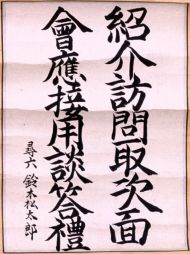 紹介訪問取次面
會應接用談答禮
尋六 鈴木松太郎